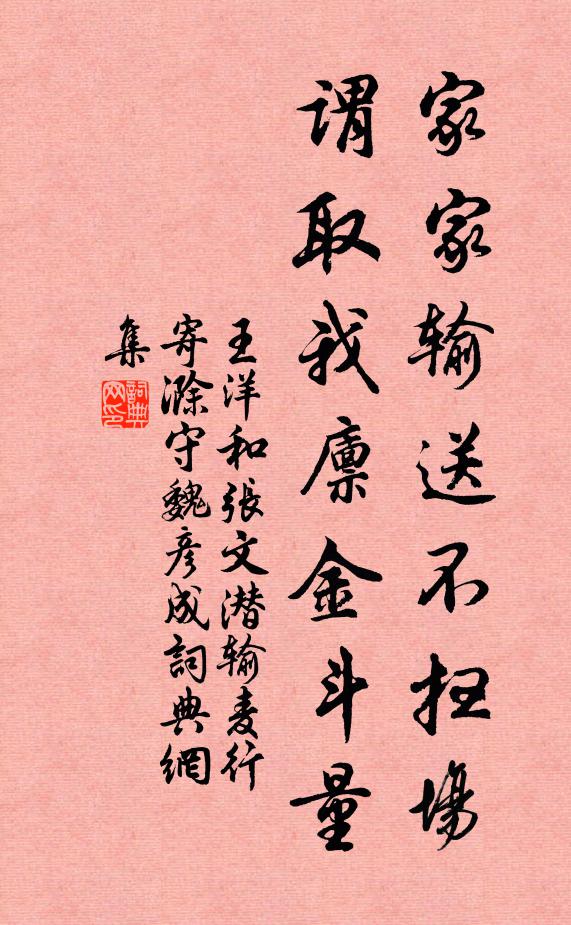 家家输送不扫場
謂取我廪金斗量
王洋和張文潜输麦行
寄滁守魏彦成詞典網
集
詞典
网印